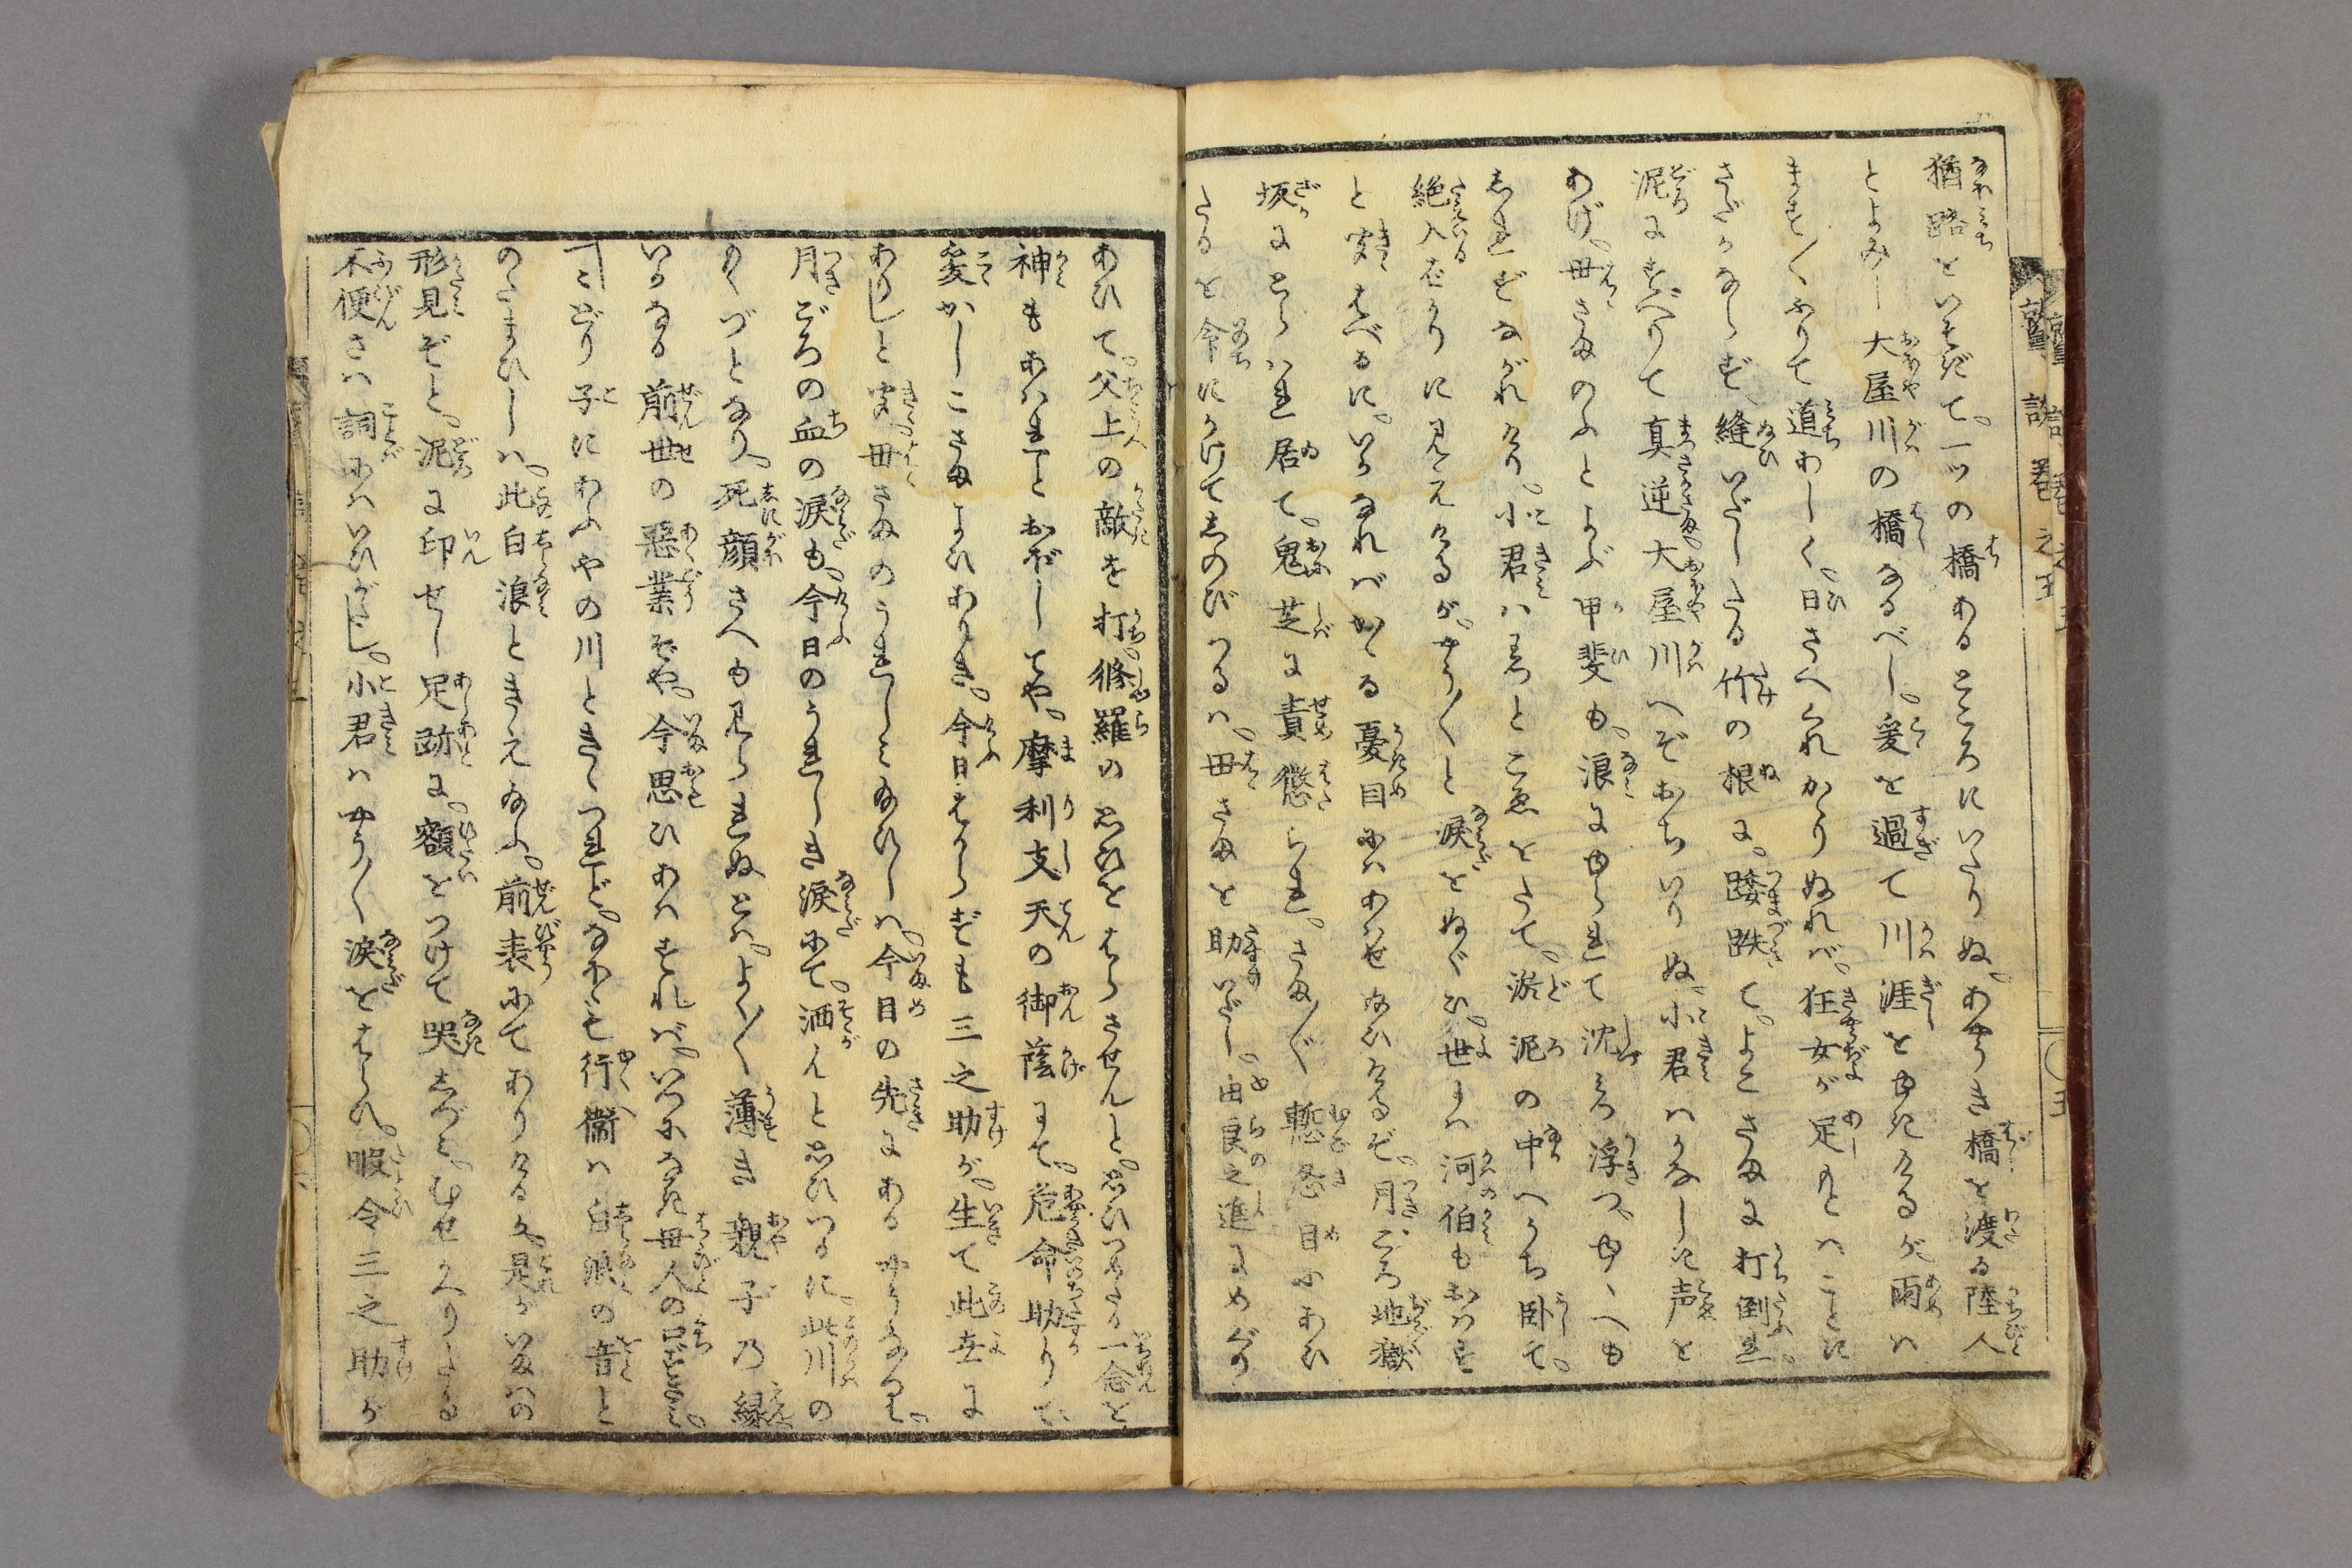 猶路といそぎて。一ツの橋あるところにいたりぬ。あやうき橋を渡る陸人
とよみし大屋川の橋なるべし。爰を過て川涯をゆきけるが雨は
ます〱ふりて道わしく。日さへくれかゝりぬれば。狂女が足もとはことに
さだかならず。縫いだしたる竹の根に。踒跌て。よこさまに打倒れ。
泥にすべりて真逆大屋川へぞおちいりぬ。小君はかなしき声を
あげ。母さまのふとよぶ甲斐も。浪にゆられて沈みつ浮つ。ゆくへも
しれずながれけり。小君はわつとこゑをたて。淤泥の中へうち臥て。
絶入ばかりに見えけるが。やう〱と涙をぬぐひ。世には河伯もおはす
と聞はべるに。いかなればかゝる憂目にはあはせ給ひけるぞ。月ごろ地獄
坂にとらはれ居て。鬼芝に責懲られ。さま〲慙忿目にあひ
たるを命にかけてしのびつるは。母さまを助いだし。由良之進にめぐり
鷲談 巻之五
〇五
あひて。父上の敵を打。修羅の思ひをはらさせんと。思ひつめたる一念を
神もあはれとおぼしてや。摩利支天の御蔭にて。危命助りて。
爰かしこさまよひありき。今日はからずも三之助が。生て此世に
ありしと聞。母さまのうれしと給ひしは。今目の先にあるやうなり。
月ごろの血の涙も。今日のうれしき涙にて。洒んと思ひつるに。此川の
もくづとなり。死顔さへも見られぬとは。よく〱薄き親子乃縁
いかなる前世の悪業ぞや。今思ひあはすれば。いつになき母人の口ずさみ。
一こどり子にあふやの川ときゝつれど。なほも行衛は白浪の音と
のたまひしは。此白浪ときえ給ふ。前表にてありけるか。是がいまはの
形見ぞと。泥に印せし足跡に。額をつけて哭しづみ。むせかへりたる
不便さは詞にはいひがたし。小君はやう〱涙をはらひ。暇令三之助が
〇六